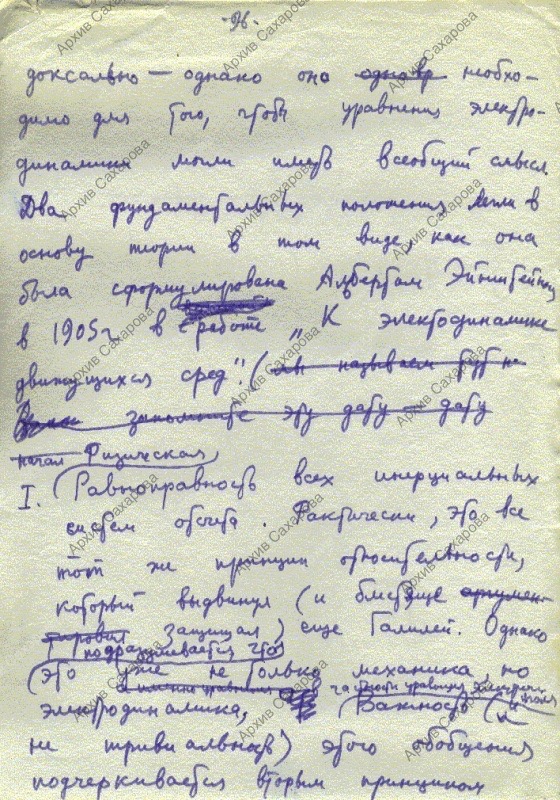 -26-
доксально — однако она необхо-
димо для того, чтобы уравнения электро-
динамики могли иметь всеобщий смысл.
Два фундаментальных положения легли в
основу теории в том виде, как она
была сформулирована Альбертом Эйнштейном
в 1905 г. в работе „К электродинамике
движущихся сред". (мы называем
запомните эту дату – дату
начал Физическая
I. Равноправность всех инерциальных
систем отсчета. Фактически, это все
тот же принцип относительности,
который выдвинул (и блестяще аргумен-
тировал защищал) еще Галилей. Однако
подразумевается что
(это уже не только механика, но
а именно уравнения в частности уравнения
электродинамика, Важность (и
не тривиальность) этого обобщения
подчеркивается вторым принципом
Архив Сахарова